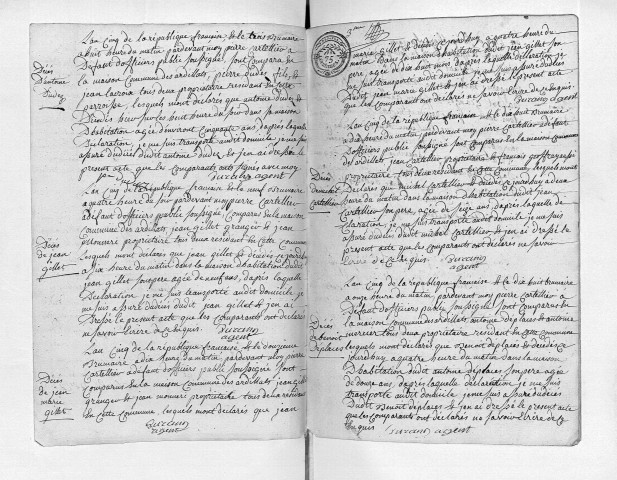 Décès
d'antoine
Dudez
Lan Cinq de la république française, & le trois Brumaire
a huit heure du matin pardevant moy pierre Cartellier a
Defaut d'officiers public soussigné, sont Comparu de
la maison Commune des ardillats, pierre dudez fils, &
jean lacroix tous deux propriétaire residans du
perroisse, lesquels mont déclarés que antoine dudez &
Décédés hier sur les huit heure du soir dans sa maison
D'habitation agée denviront Cinquante ans, dapres laquelle
Declaration, je me suis transporté audit domicile, je me suis
assuré dudécès dudit antoine dudez, & jen ai dressé le
present acte que les Comparants ont signés avec moy
agent
Décès
de jean
gillet
Lan Cinq de la république française & le neuf Brumaire
a quatre heure du soir pardevant moy pierre Cartellier
a defaut dofficiers public soussigné, Comparus en la maison
Commune des ardillats, jean gillet granger & jean
propriétaire tous deux residant en Cette Commune
lesquels mont declarés que jean gillet & décédés ce jourdhuy
a six heure du matin dans la maison d'habitation dudit
jean gillet son pere agée de neuf mois, dapres laquelle
Declaration je me suis transporté audit domicile je
me suis assuré dudécès dudit jean gillet & jen ai
Dressé le present acte que les Comparants ont déclarés
ne savoir Ecrire de Ce Enquis
agent
Décès
de jean
marie
gillet
Lan Cinq de la république française & le douzieme
Brumaire a dix heure du matin, pardevant moy pierre
Cartellier a defaut dofficiers public soussigné sont
Comparus en la maison Commune des ardillats jean gillet
granger & jean propriétaire tous deux residans
En Cette Commune, lesquels mont déclarés que jean
agent
marie gillet & décédé Ce jourdhuy a quatre heure du
matin dans la maison d'habitation dudit jean gillet son
pere, agée de deux mois, dapres laquelle declaration je
me suis transporté audit domicile je me suis assuré dudécès
Dudit jean marie gillet & jen ai dressé le present acte
que les Comparants ont déclarés ne savoir Ecrire de ce Enquis
agent
Décès
de michel
Cartellier
Lan Cinq de la république française & le dix huit Brumaire
a du matin, pardevant moy pierre Cartellier a defaut
dofficiers public soussigné sont Comparus En la maison Commune
des ardillats, jean Cartellier propriétaire & françois
propriétaire tous deux residant En Cette Commune, lesquels mont
Déclarés que michel Cartellier & décédés Ce jourdhuy a deux
heure du matin dans la maison d'habitation dudit jean
Cartellier son pere, agée de seize ans, dapres laquelle de
claration, je me suis transporté audit domicile je me suis
assuré dudécès dudit michel Cartellier & jen ai dressé le
present acte que les Comparants ont déclarés ne savoir
Ecrire de ce Enquis
agent
Décès
de benoit
Deplaces
Lan Cinq de la république française & le dix huit Brumaire
a onze heure du matin, pardevant moy pierre Cartellier a
Defaut dofficiers public soussigné sont Comparus En
la maison Commune des ardillats antoine deplaces & antoine
mercier tous deux propriétaire residant En Cette Commune
lesquels mont Declarés que Benoit deplaces & décédés Ce
jourdhuy a quatre heure du matin dans la maison
D'habitation dudit antoine deplaces son pere agée
de douze ans, dapres laquelle déclaration je me suis
transporté audit domicile je me suis assuré dudécès
Dudit Benoit deplaces & jen ai dressé le present acte
que les Comparants ont déclarés ne savoir Ecrire de Ce
Enquis
agent